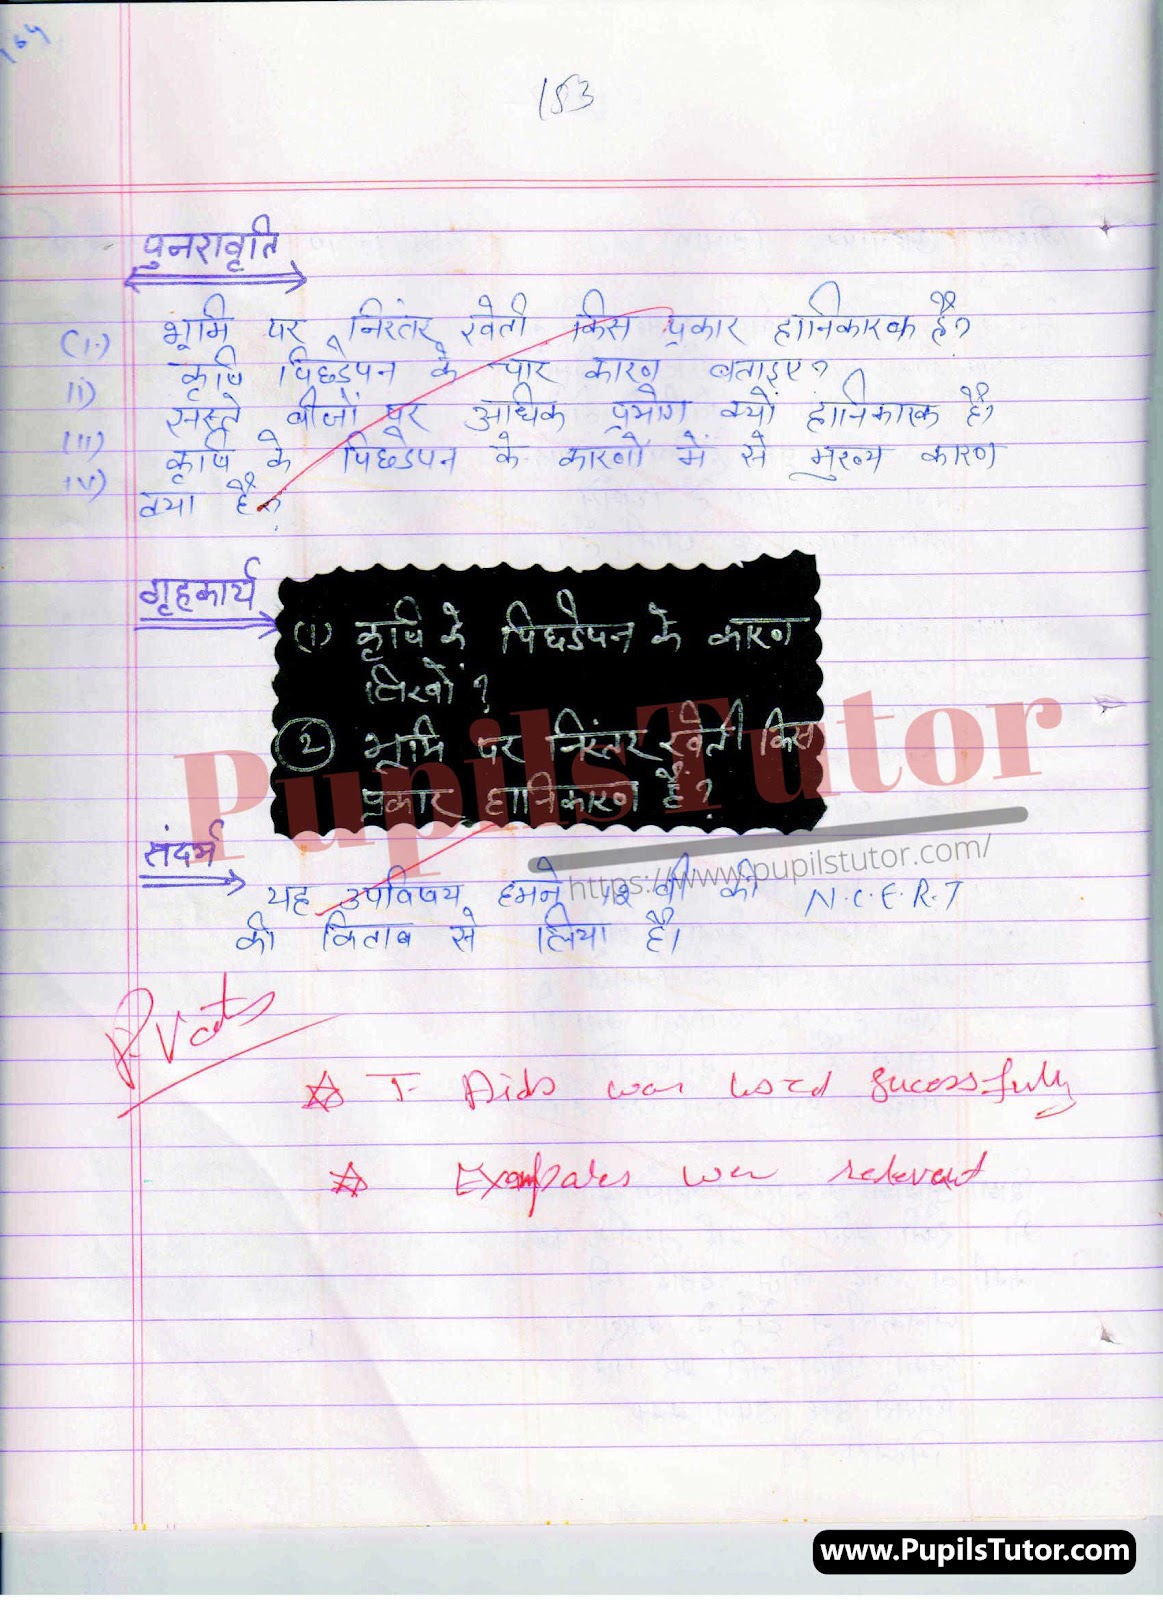 153
पुनरावृति
(i.) भूमि पर निरंतर खेती किस प्रकार हानिकारक है?
ii) कृषि पिछडेपन के चार कारण बताइए?
(iii) सस्ते बीजों पर अधिक प्रयोग क्यों हानिकारक है।
iv) कृषि के पिछडेपन के कारणों में से मुख्य कारण
क्या है?
गृहकार्य
(1) कृषि के पिछडेपन के कारण
लिखों?
2 भूमि पर निरंतर खेती किस
प्रकार हानिकारण है?
Pupils Tutor
https://www.pupilstutor.com/
संदर्भ
यह उपविषय हमने वी की N.C.E.R.T
की किताब से लिया है।
T Aids was used sucessfully
Examples were relevant
www.PupilsTutor.com